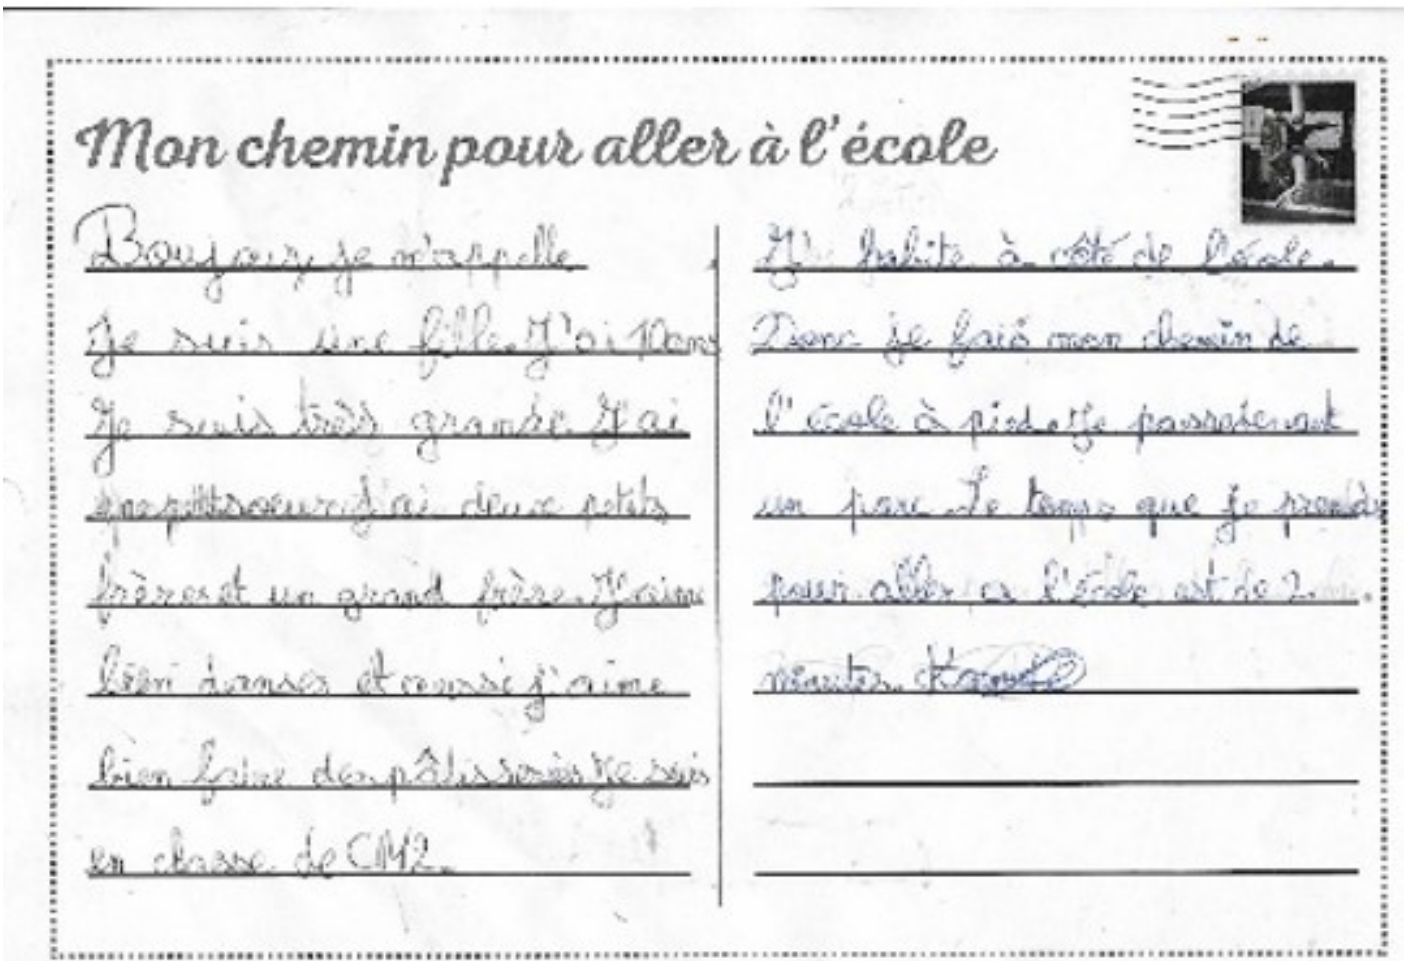 Mon chemin pour aller à l'école
Boujour, je m'appelle
Je suis une fille. J'ai 10 ans
Je suis très grande. J'ai
une petite soeur j'ai deux petits
frères et un grand frère. J'aime
bien danser et aussi j'aime
bien faire des pâtisseries Je suis
en classe de CM2.
J' habite à côté de l'école.
Donc je fais mon chemin de
l'école à pied. Je passe
un parc. Le temps que je prends
pour aller a l'école est de 2
minutes.